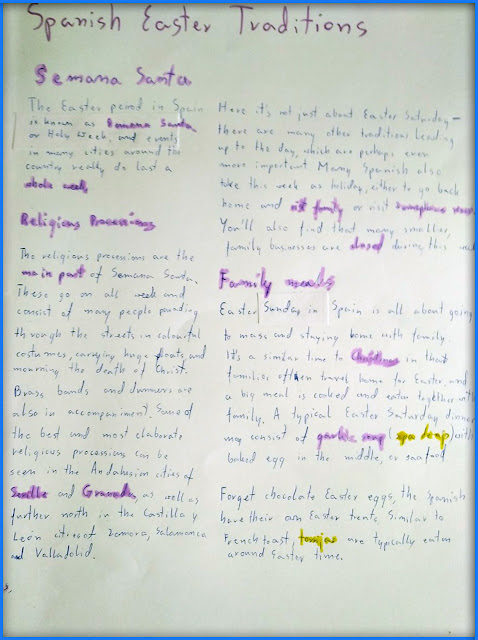 Spanish Easter Traditions
Semana Santa
The Easter period in Spain
is known as Semana Santa
or Holy Week, and events
in many cities around the
country really do last a
whole week.
Religious Processions
The religious processions are the
main part of Semana Santa.
These go on all week and
consist of many people parading
through the streets in colourful
costumes, carrying huge floats and
mourning the death of Christ.
Brass bands and drummers are
also in accompaniment. Some of
the best and most elaborate
religious processions can be
seen in the Andalusian cities of
Seville and Granada, as well as
further north in the Castilla y
León cities of Zamora, Salamanca
and Valladolid.
Here it's not just about Easter Saturday –
there are many other traditions leading
up to the day, which are perhaps even
more important. Many Spanish also
take this week as holiday, either to go back
home and visit family or visit somewhere
You'll also find that many smaller,
family businesses are closed during this
Family meals
Easter Sunday in Spain is all about going
to mass and staying home with family.
It's a similar time to Christmas in that
families often travel home for Easter, and
a big meal is cooked and eaten together with
family. A typical Easter Saturday dinner
may consist of garlic soup (sopa de ajo) with
baked egg in the middle, or seafood
Forget chocolate Easter eggs, the Spanish
have their own Easter treats. Similar to
French toast, torrijas are typically eaten
around Easter time.